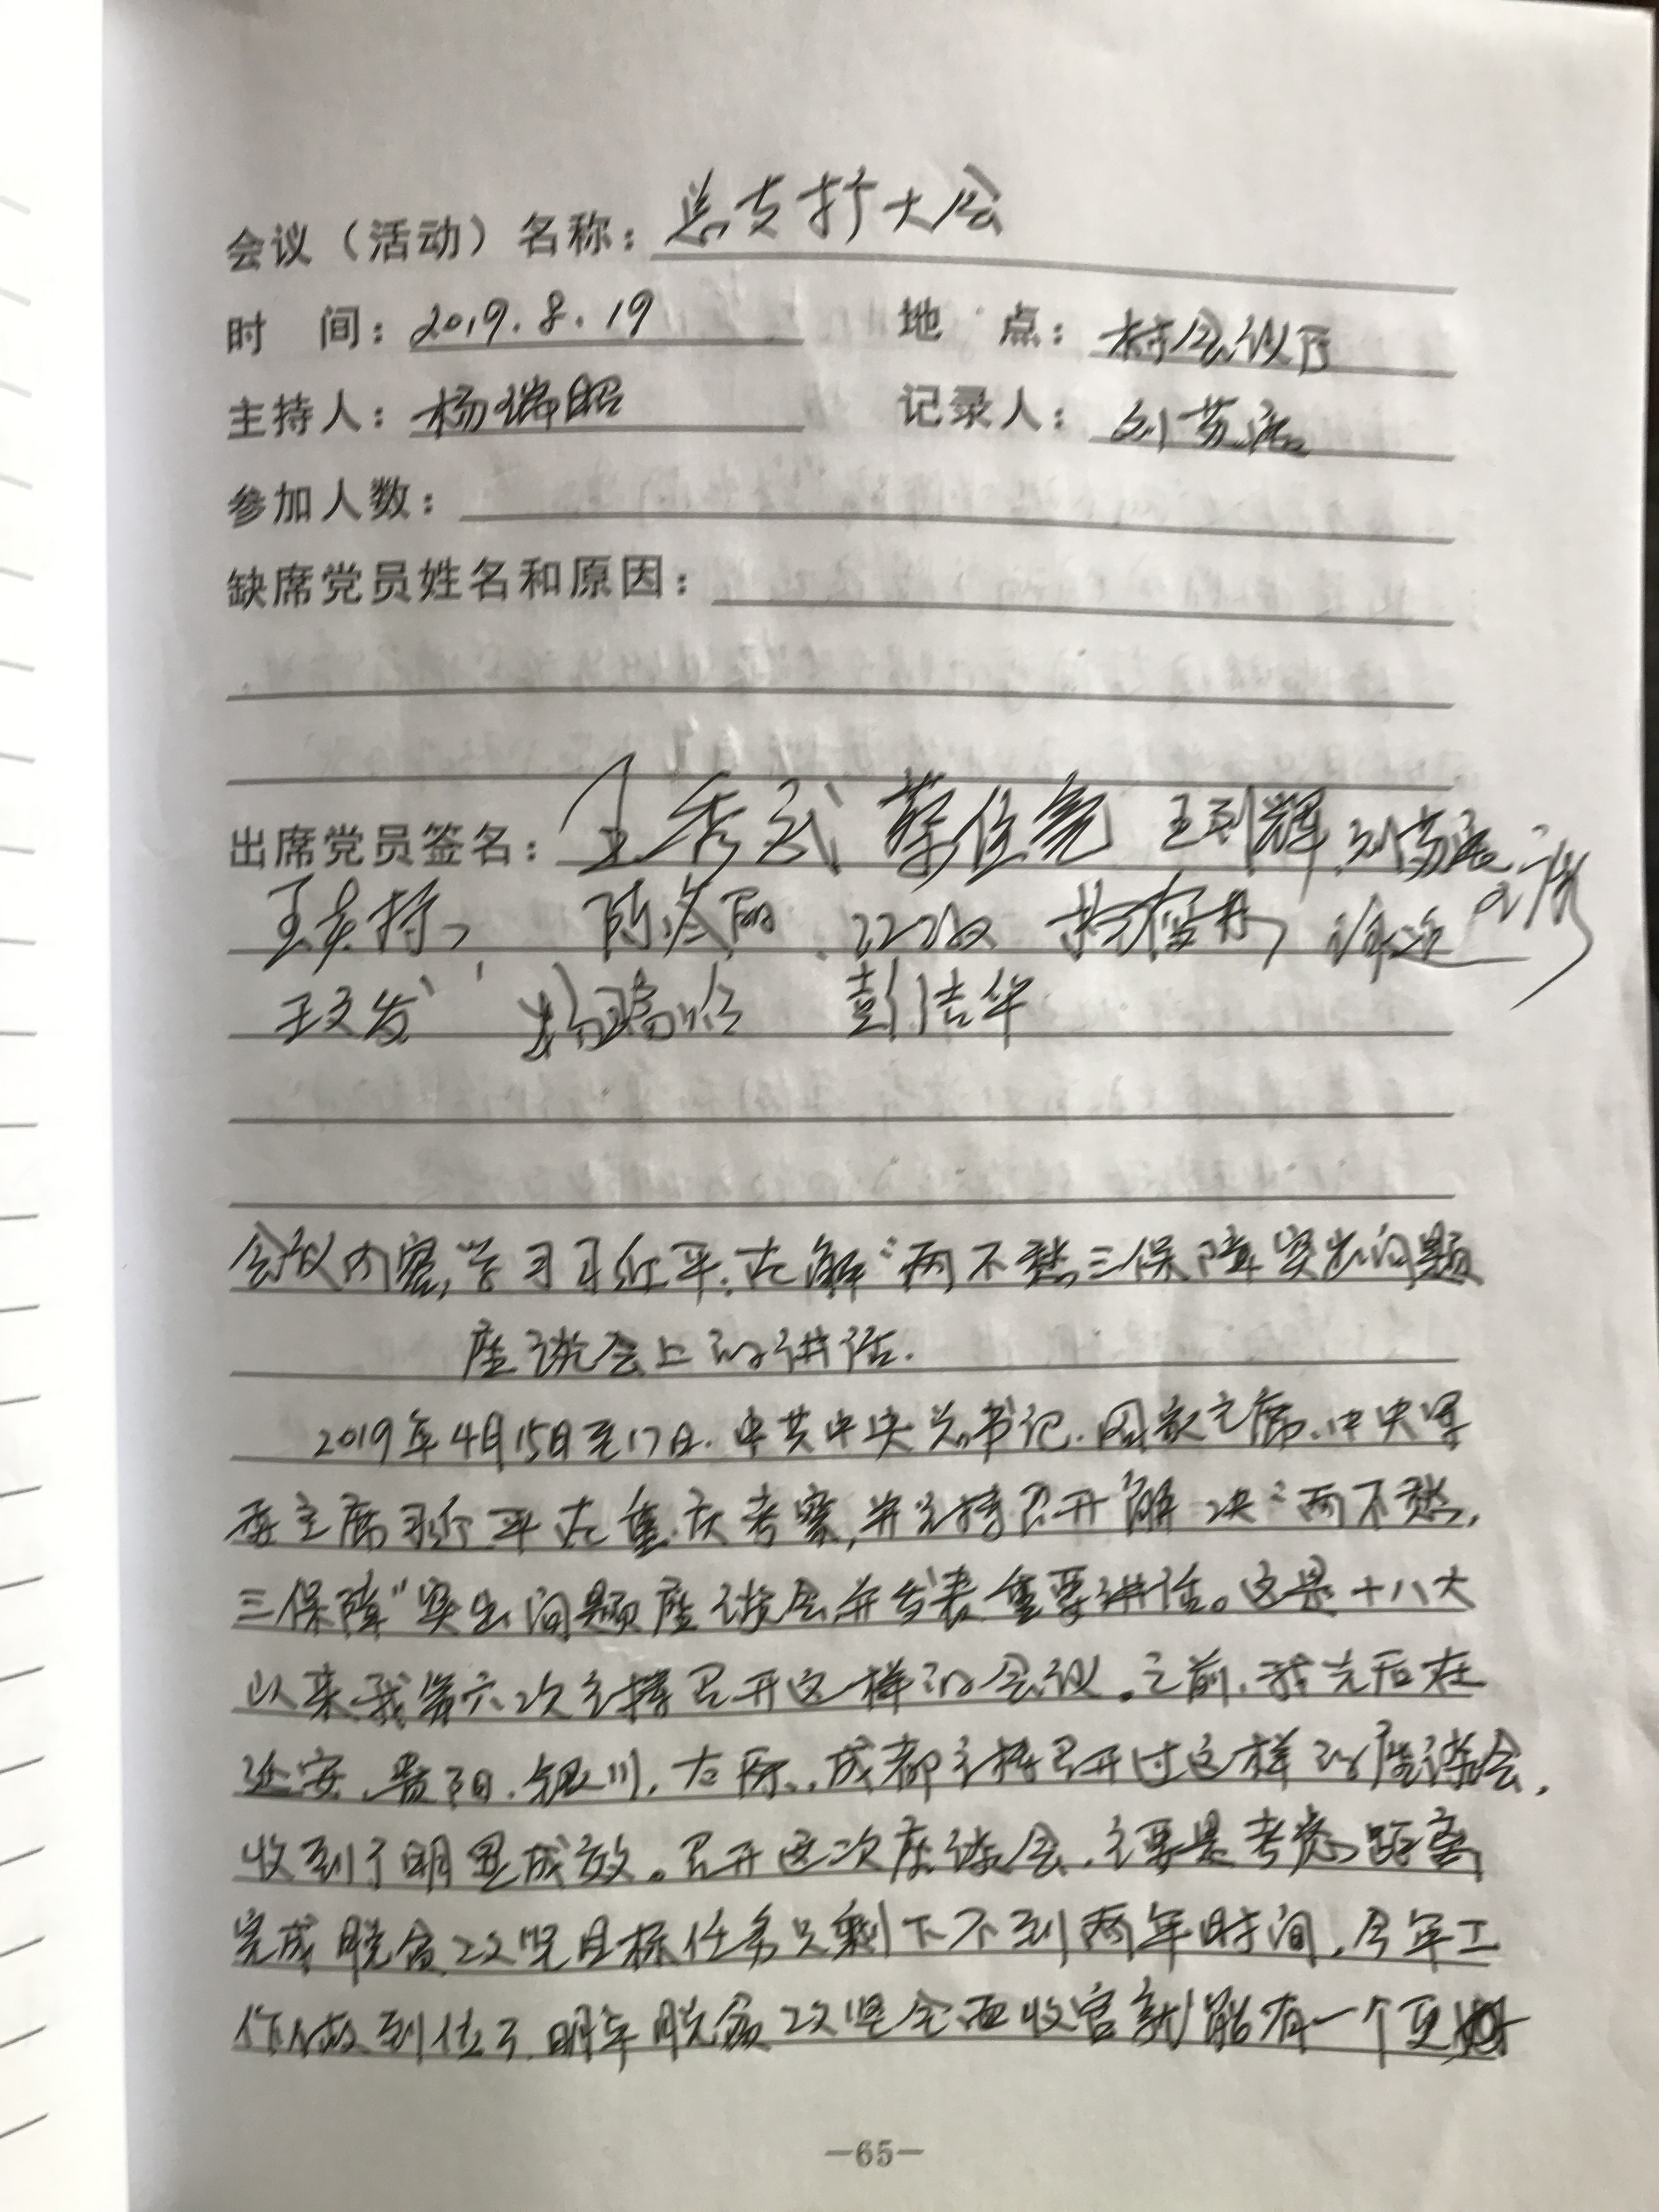 会议（活动）名称：总支扩大会
时 间：2019.8.19 地 点：村会议厅
主持人：杨瑞昭 记录人：刘芳
参加人数：
缺席党员姓名和原因：
出席党员签名：王秀武 王利辉
王文发 彭洁华
会议内容，学习习近平.在解"两不愁三保障突出问题
座谈会上的讲话.
2019年4月15日至17日.中共中央总书记.国家主席.中央军
委主席习近平在重庆考察,并主持召开"解决"两不愁,
三保障"突出问题座谈会并发表重要讲话。这是十八大
以来我第六次主持召开这样的会议。之前,我先后在
延安、贵阳.银川,太原、成都主持召开过这样的座谈会,
收到了明显成效。召开这次座谈会.主要是考虑距离
完成脱贫攻坚目标任务只剩下不到两年时间,今年工
作做到位了.明年脱贫攻坚全面收官就能有一个更好
—65—